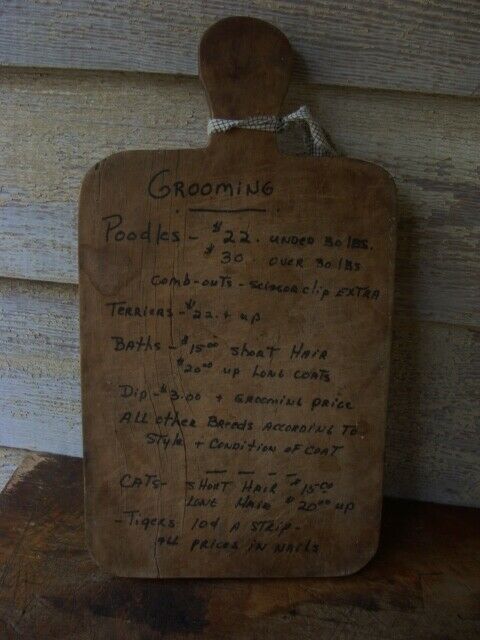 GROOMING
Poodles - $22. UNDER 30 lbs.
$30. OVER 30 lbs
Comb-outs - SCISSOR clip EXTRA
TERRIERS - $22. + up
BATHS - $15.00 SHORT HAIR
$20.00 UP LONG COATS
Dip - $3.00 + GROOMING PRICE
ALL OTHER BREEDS ACCORDING TO
STYLE + CONDITION OF COAT
CATS - SHORT HAIR $15.00
LONG HAIR $20.00 UP
- TIGERS 10¢ A STRIP -
ALL PRICES IN NAILS